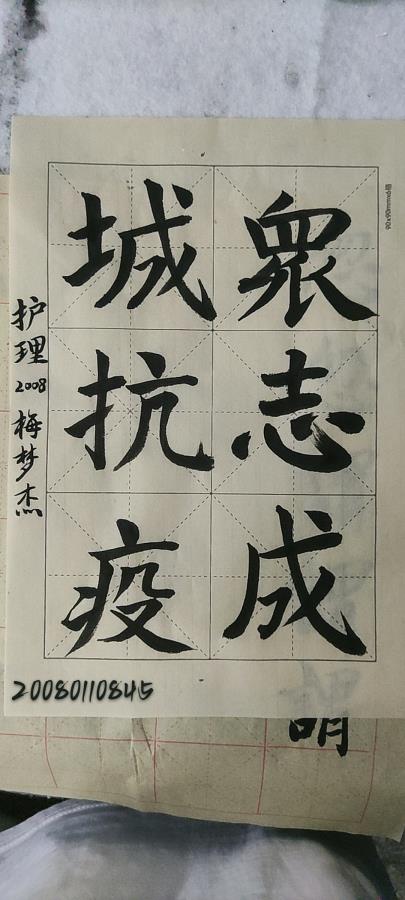 眾志成
城抗疫
护理2008梅梦杰
20080110845
90x90mm